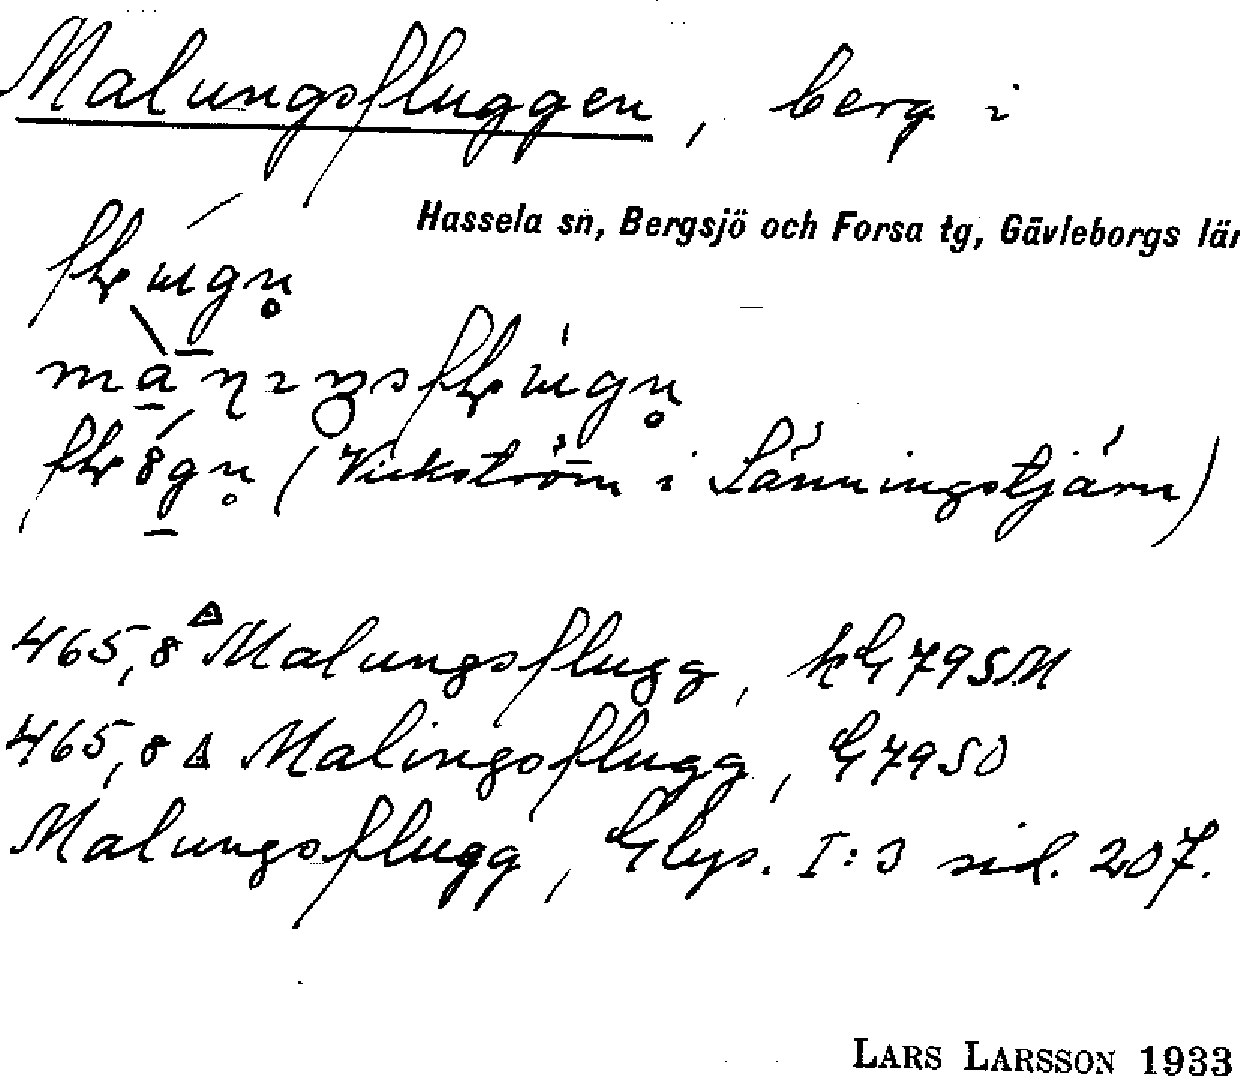 Malungsfluggen, berg i
Hassela sn, Bergsjö och Forsa tg, Gävleborgs lär
(Vickström i Sänningstjärn)
465,8 △ Malungsflugg, kG 79 SM
465,8 △ Malingsflugg, G 79 SO
Malungsflugg, Glys. I:3 sid. 207.
LARS LARSSON 1933